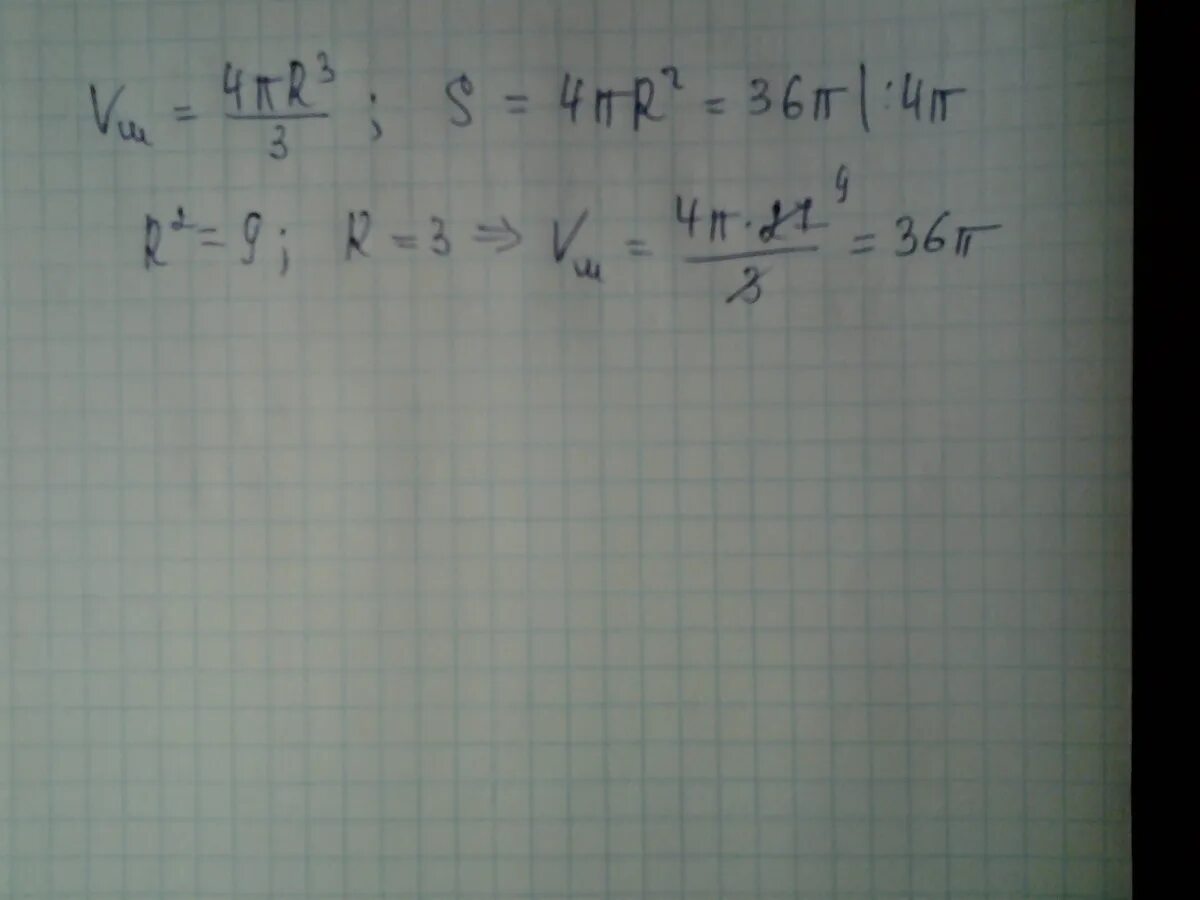 Vш = 4πR³/3 ; S = 4πR² = 36π |:4π
R² = 9; R = 3 ⇒ Vш = 4π·27/3 9 = 36π